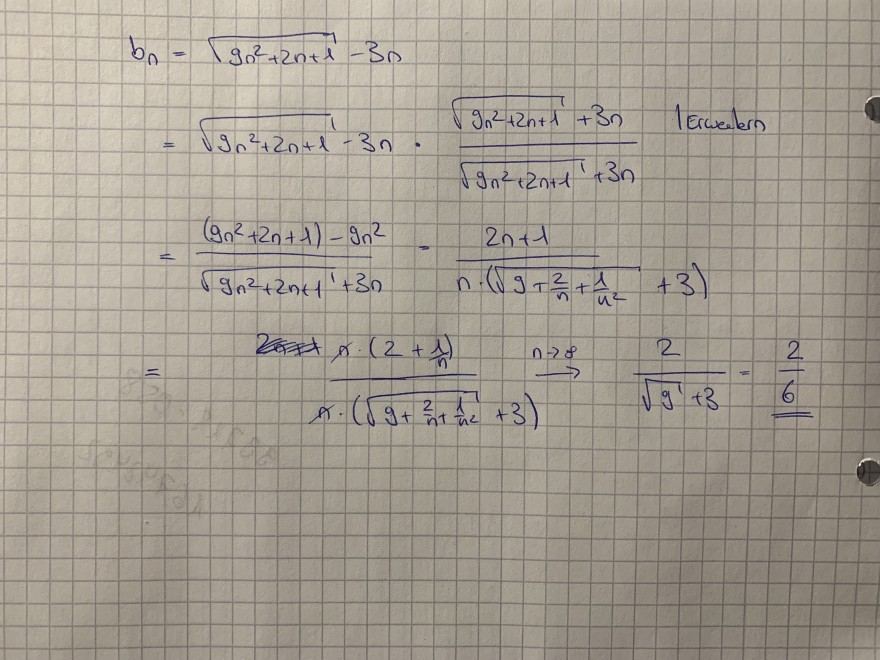 bₙ = √(9n²+2n+1) - 3n
= √(9n²+2n+1) - 3n · (√(9n²+2n+1) + 3n)/(√(9n²+2n+1) + 3n) | Erweitern
= ((9n²+2n+1) - 9n²)/(√(9n²+2n+1) + 3n) = (2n+1)/(n·(√(9+2/n+1/n²) + 3))
= (n·(2+1/n))/(n·(√(9+2/n+1/n²) + 3)) n→∞ ⟶ 2/(√9+3) = 2/6